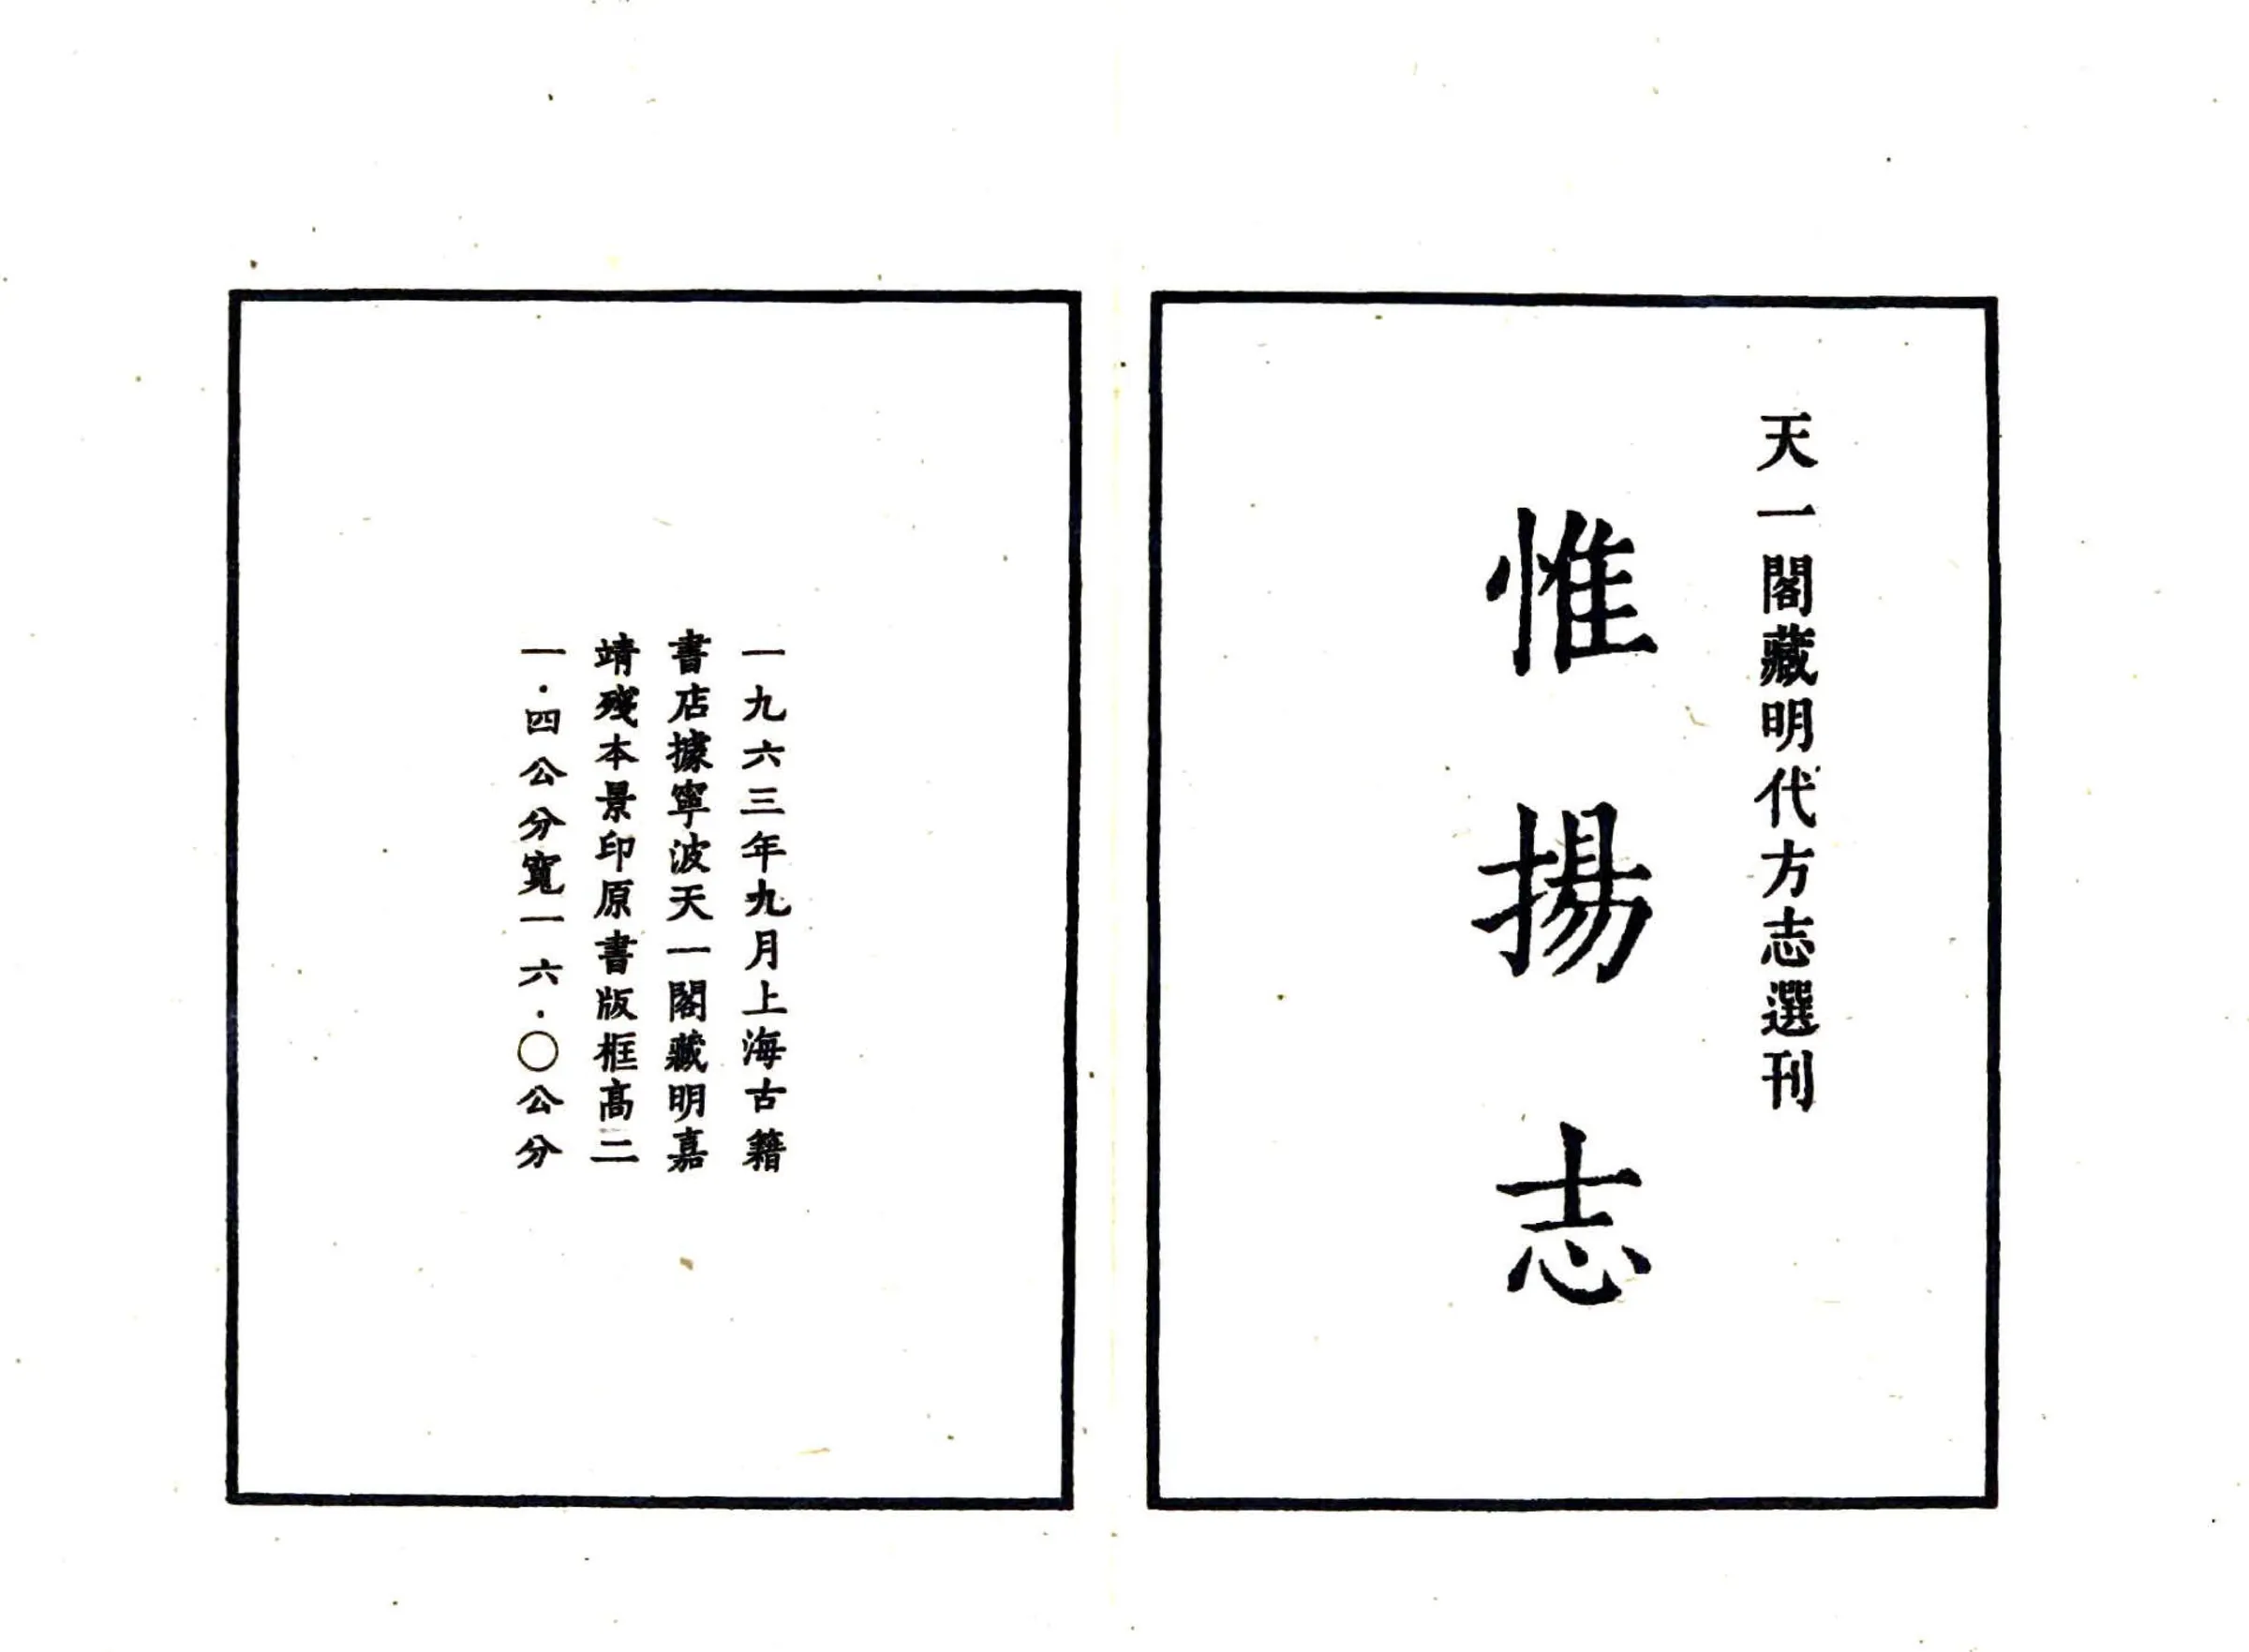 天一閣藏明代方志選刊
惟揚志
一九六三年九月上海古籍
書店據寧波天一閣藏明嘉
靖殘本景印原書版框高二
一·四公分寬一六·〇公分